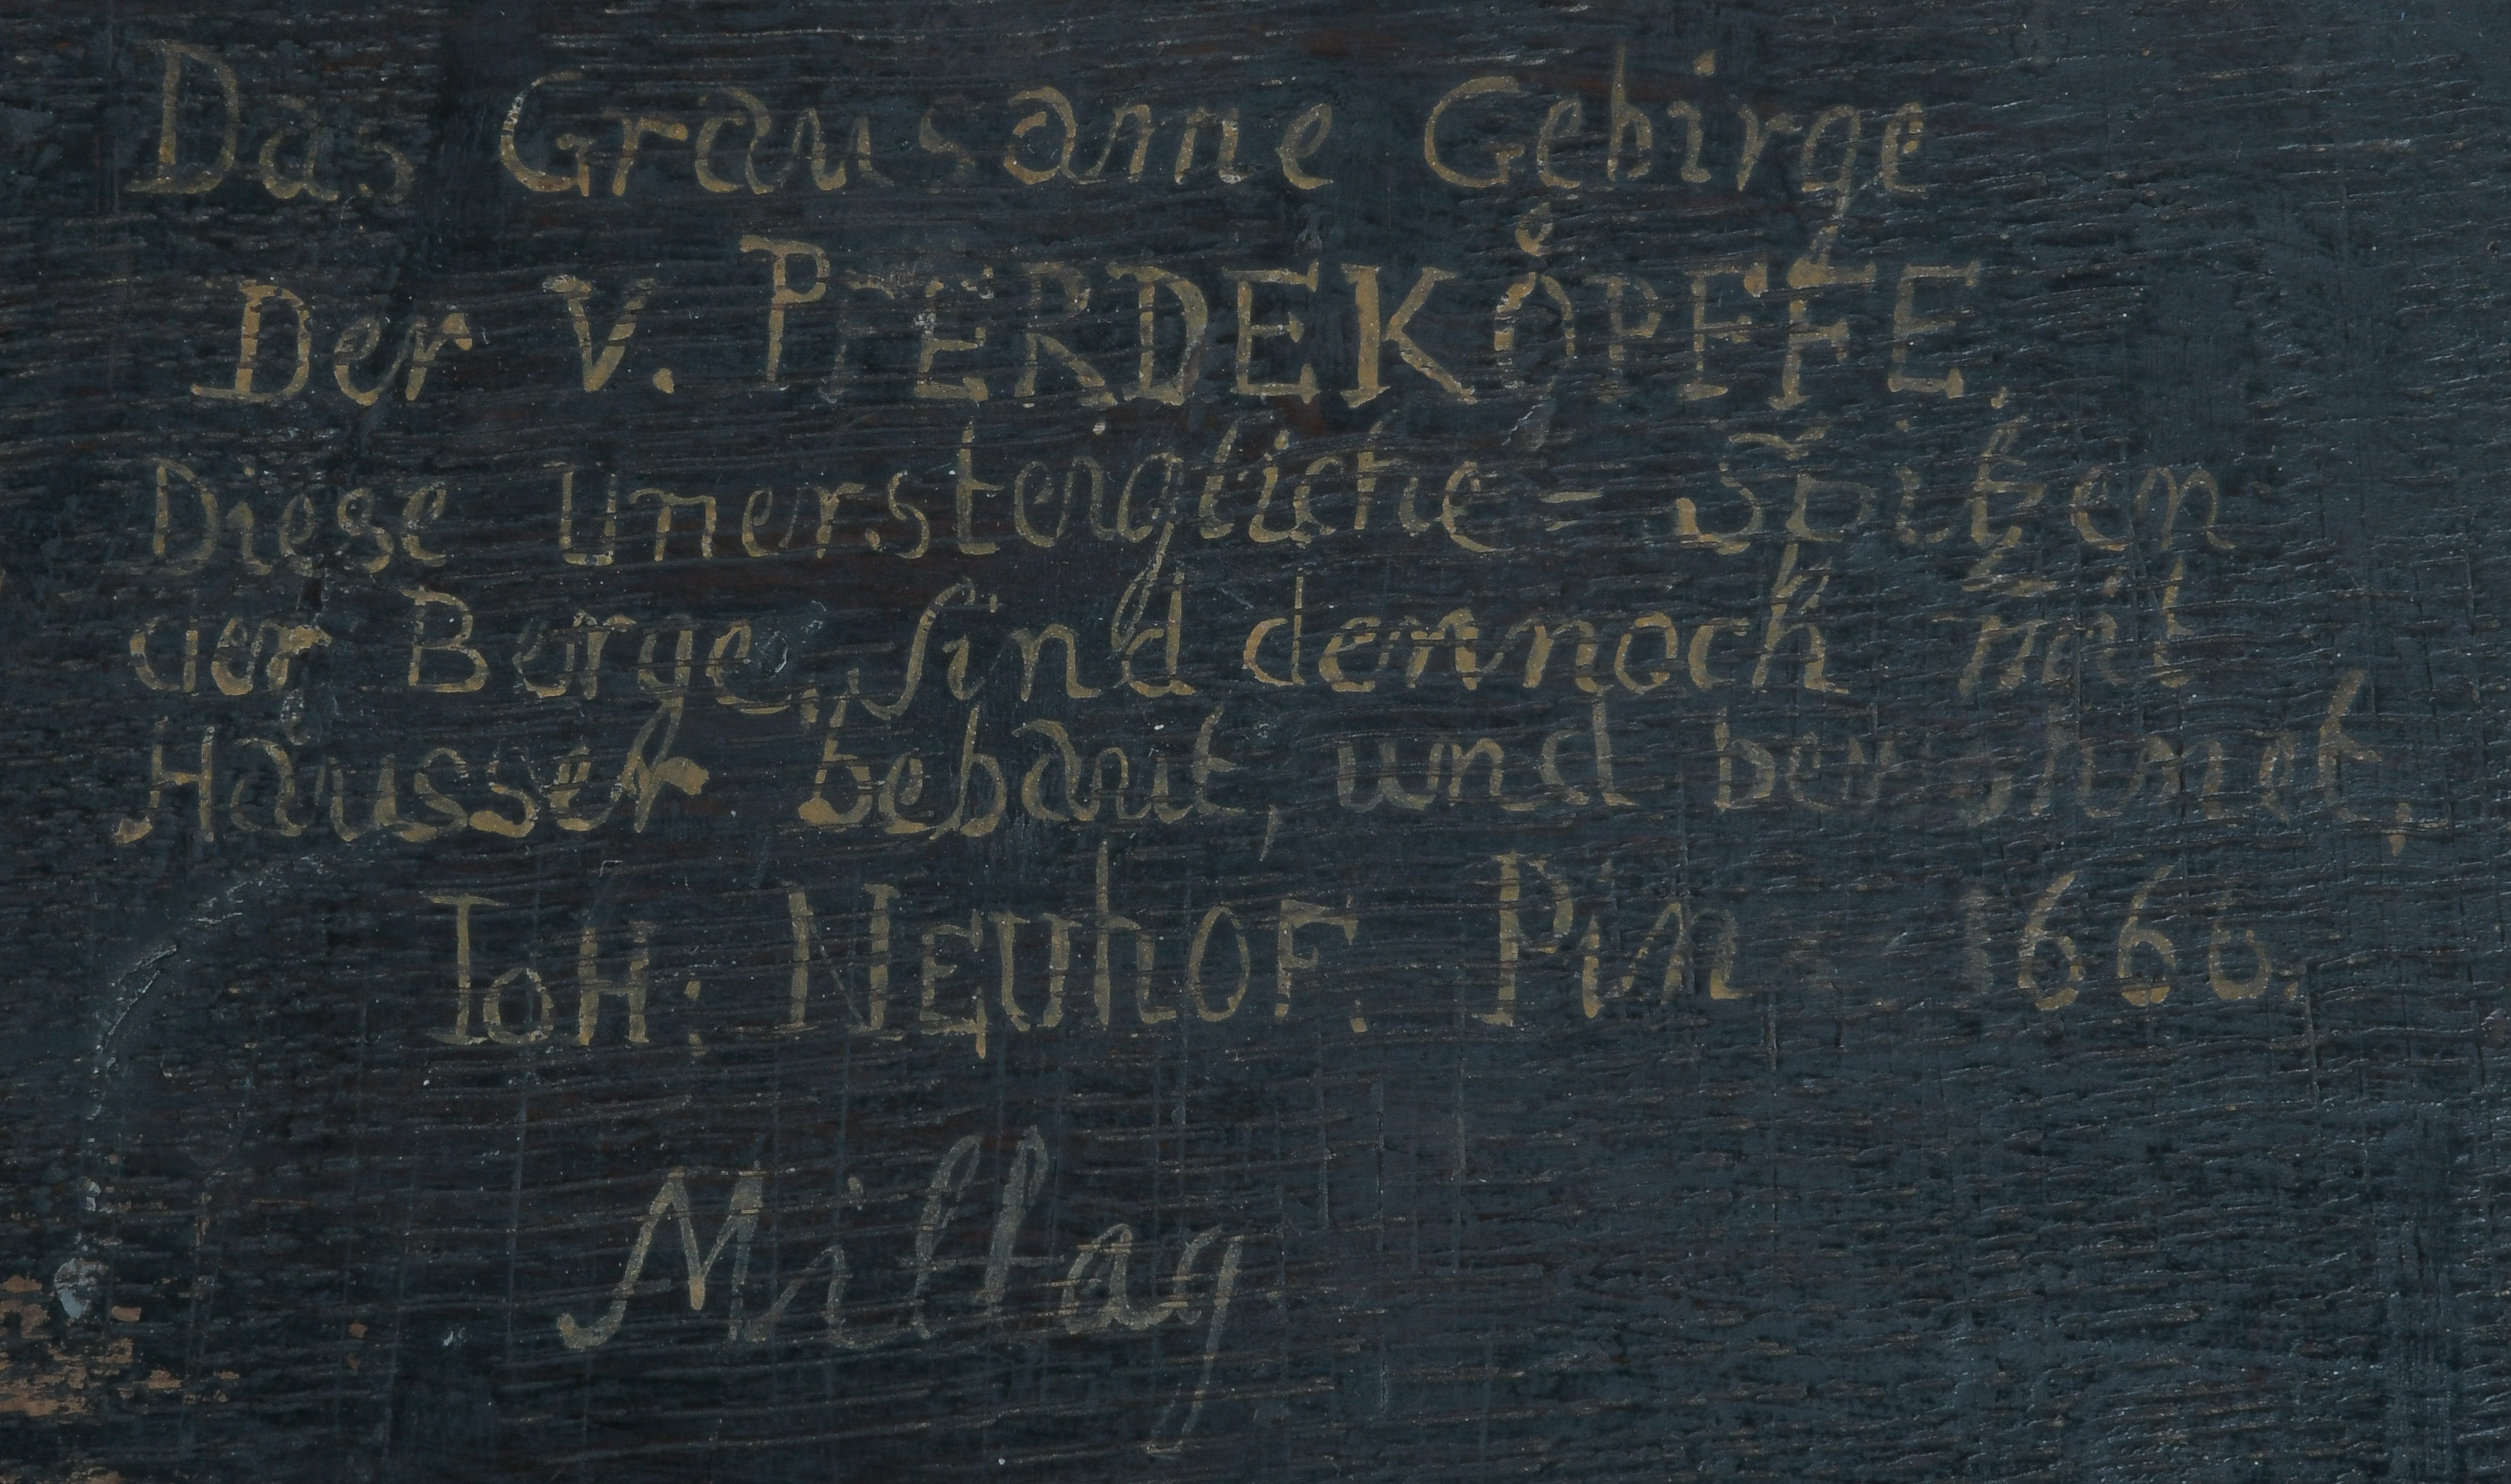 Das Grausame Gebirge
Der V. PFERDEKÖPFFE.
Diese Unersteigliche - Spitzen
der Berge, sind dennoch mit
Häusser bebaut, und bewohnet.
IoH: NEUhOF. Pin. 1666.
Mittag